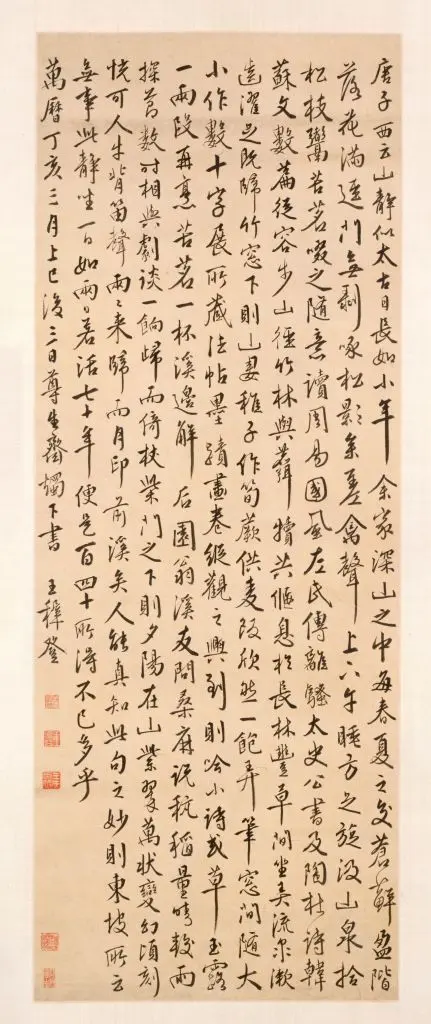 唐子西云山靜似太古日長如小年余家深山之中每春夏之交蒼蘚盈階
落花滿逕門無剝啄松影參差禽聲上下午睡方足旋汲山泉拾
松枝鬻苦茗啜之隨意讀周易國風左氏傳離騷太史公書及陶杜詩韓
蘇文數篇從容步山徑竹林與麛犢共偃息於長林豐草間坐弄流泉漱
齒濯足既歸竹窓下則山妻稚子作筍蕨供麥飯欣然一飽弄筆窓間隨大
小作數十字展所藏法帖墨蹟畫卷縱觀之興到則吟小詩或草玉露
一兩段再烹苦茗一杯溪邊解后園翁溪友問桑麻說秔稻量晴較雨
探節數时相與劇談一餉歸而倚杖柴門之下則夕陽在山紫翠萬狀變幻頃刻
恍可人牛背笛聲兩〻來歸而月印前溪矣人能真知此句之妙則東坡所云
無事此靜坐一日如兩日若活七十年便是百四十所得不已多乎
萬曆丁亥三月上巳後三日尊生齋燭下書 王穉登